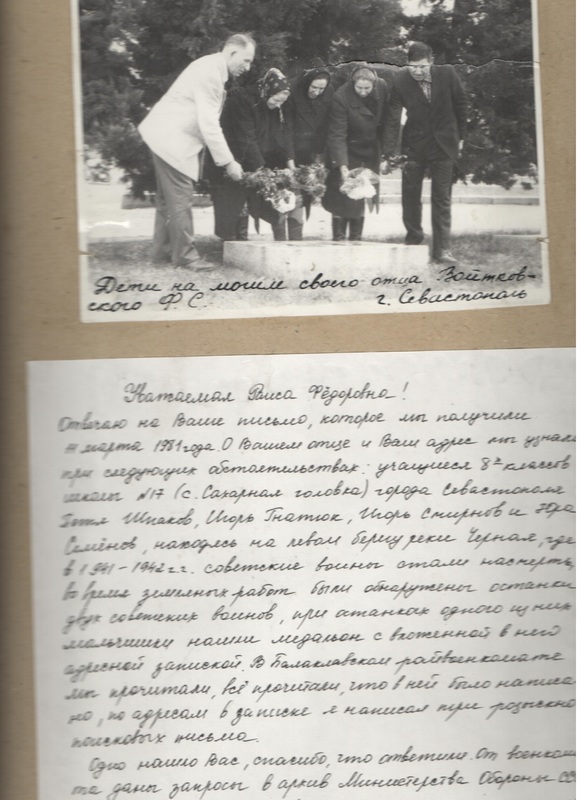 Дети на могиле своего отца Войтков-
ского Ф.С. г. Севастополь
Уважаемая Раиса Фёдоровна!
Отвечаю на Ваше письмо, которое мы получили
11 марта 1981 года. О Вашем отце и Ваш адрес мы узнали
при следующих обстоятельствах: учащиеся 8х классов
школы №17 (с. Сахарная головка) города Севастополя
Шпаков, Игорь Гнатюк, Игорь Смирнов и Юра
Семёнов, находясь на левом берегу реки Черная, где
в 1941-1942 г.г. советские воины стали насмерть,
во время земляных работ были обнаружены останки
двух советских воинов, при останках одного из них
мальчишки нашли медальон с вложенной в него
адресной запиской. В Балаклавском райвоенкомате
мы прочитали, всё прочитали, что в ней было написа
но, по адресам в записке я написал три розыскно
поисковых письма.
Одно нашло Вас, спасибо, что ответили. От военком
та даны запросы в архив Министерства Обороны СС